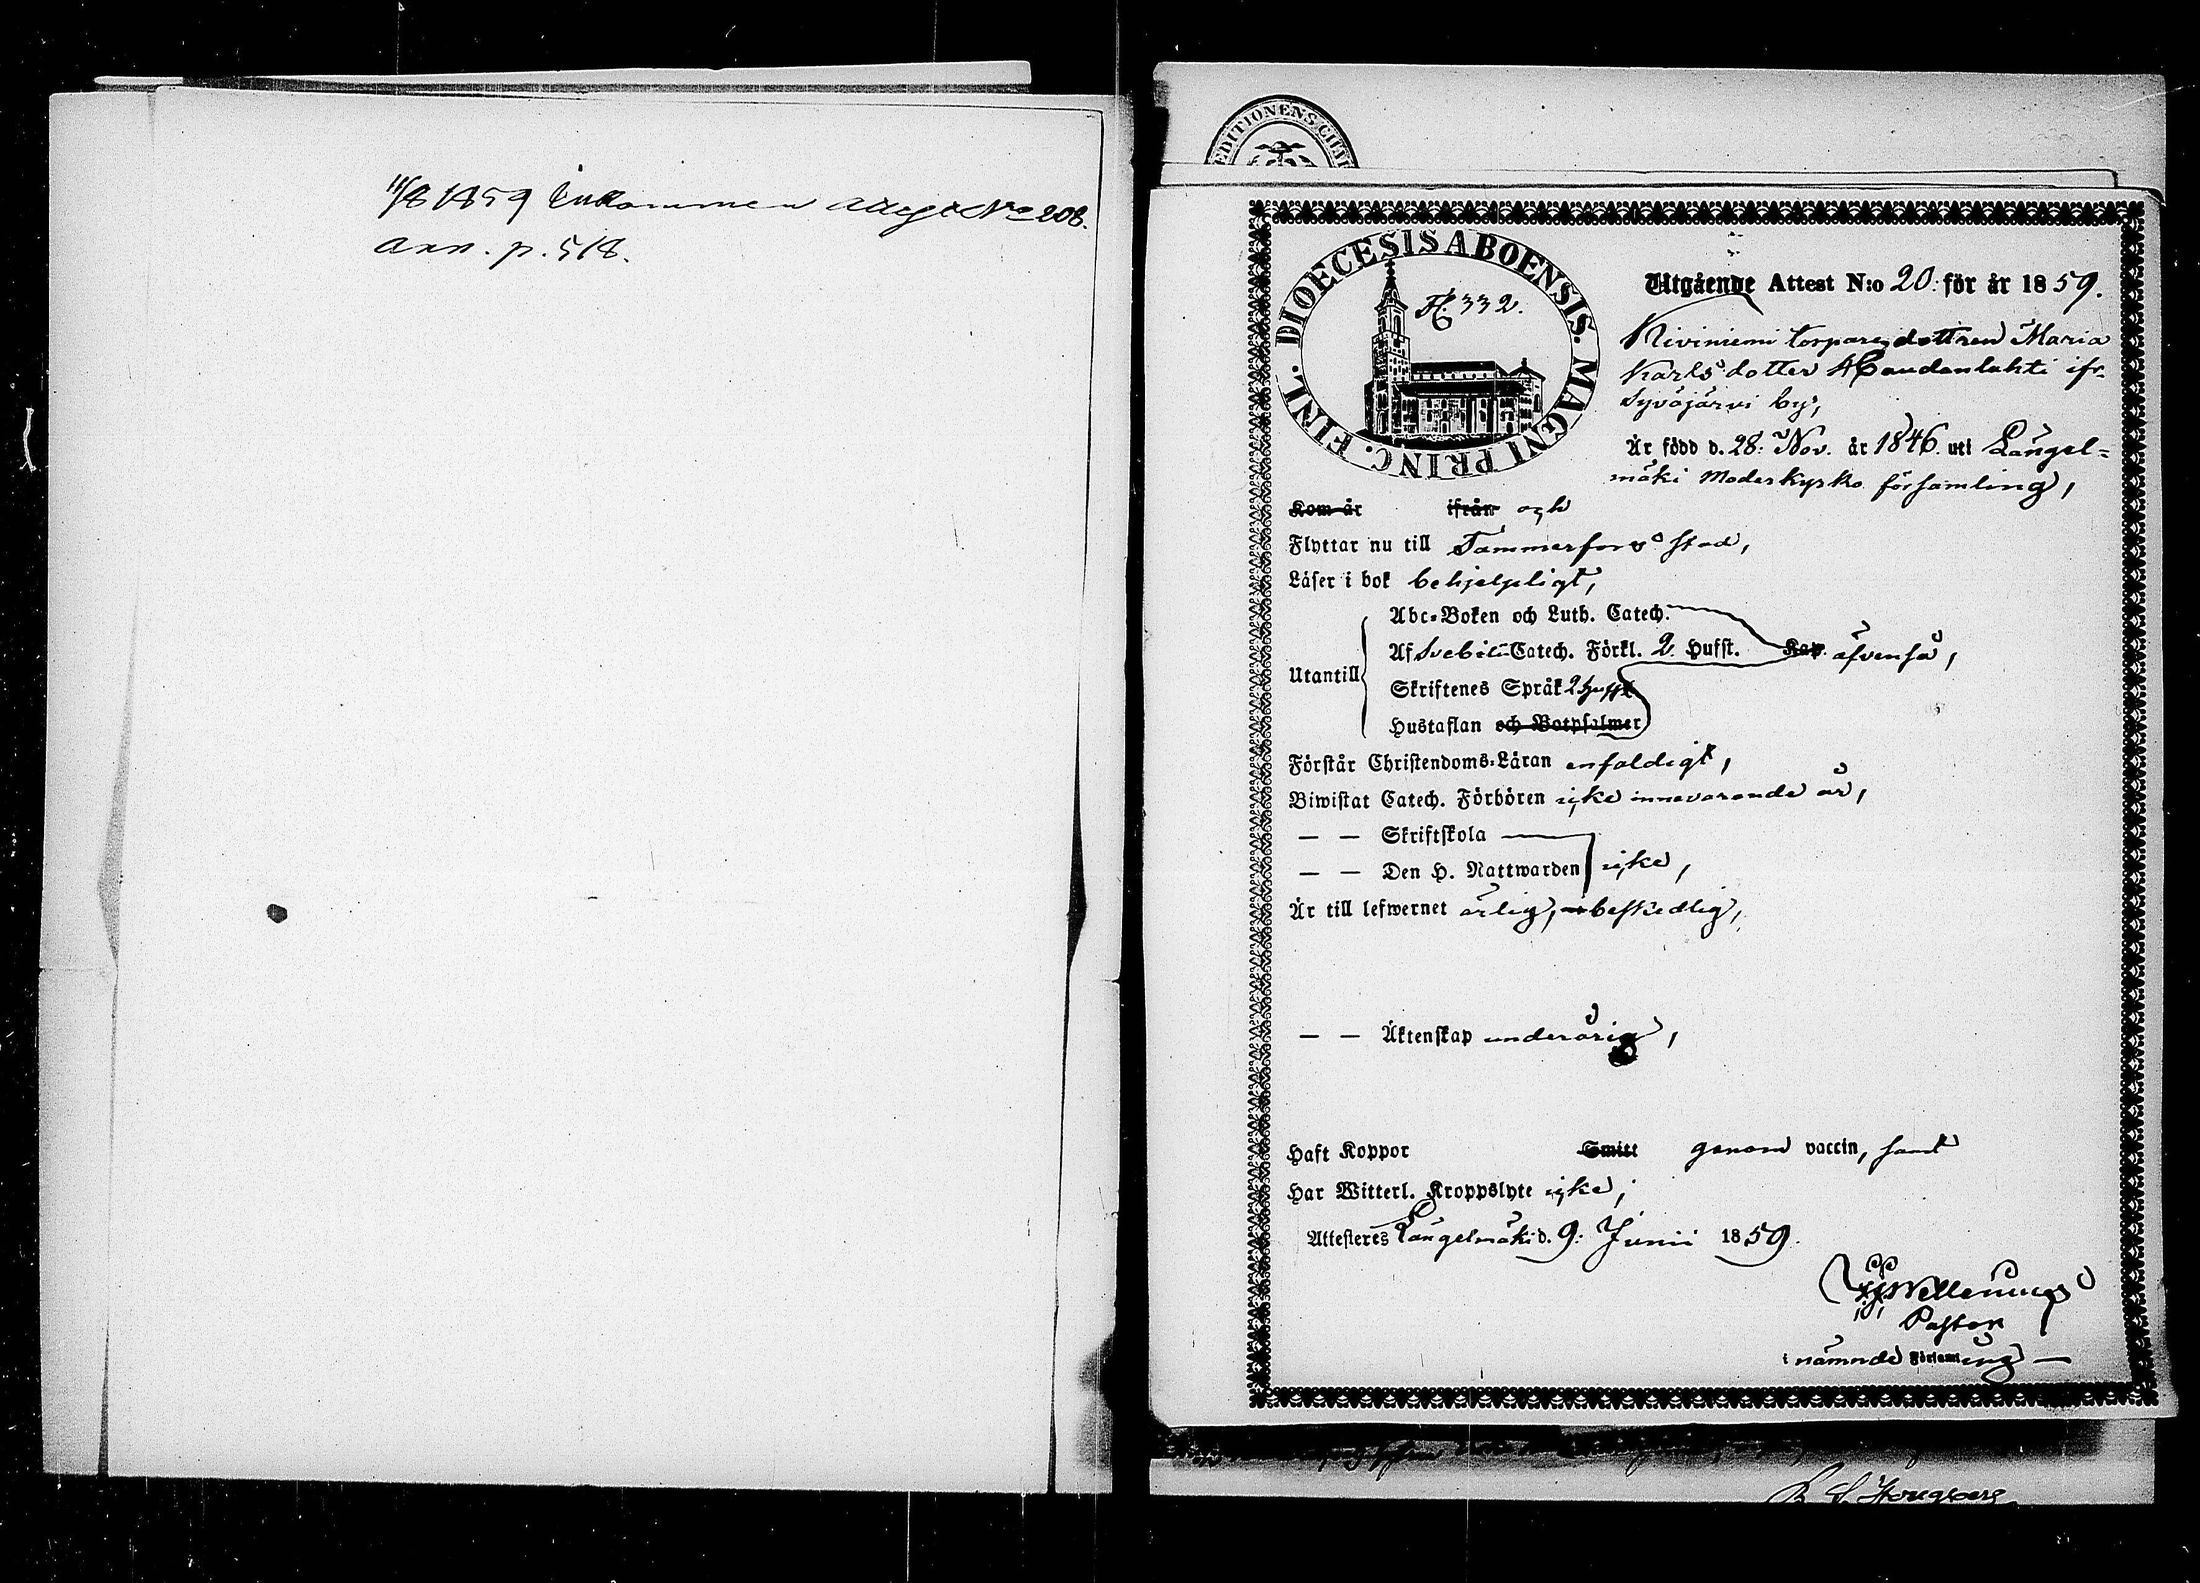 11/8 1859 Inkommen attest No 208.
ann. p. 518.
EDITIONENS CHA
DIOECESIS ABOENSIS. MAGNI PRINC. FINL.
332.
Utgående Attest N:o 20: för år 1859.
Kiviniemi torpare dottren Maria
Karls dotter Haudanlahti ifr.
Syväjärvi by,
Är född d. 28: Nov. år 1846. uti Längel=
mäki Moderkyrko församling,
Kom år ifrån och
Flyttar nu till Tammerfors stad,
Läser i bok behjelpligt,
Abc-Boken och Luth. Catech.
Utantill Af Svebilii Catech. Förkl. 2 Hufst. Kap. äfvenså,
Skriftenes Språk 2 Hufst
Hustaflan och Botpsalmer
Förstår Christendoms-Läran enfaldigt,
Biwistat Catech. Förhören icke innevarande år,
— — Skriftskola
— — Den H. Nattwarden icke,
Är till lefwernet ärlig, beskedlig,
— — Äktenskap underårig,
Haft Koppor Smitt genom vaccin, samt
Har Witterl. Kroppslyte icke,
Attesteres Längelmäki d. 9: Junii 1859.
Pastor
i nämnde Församling —